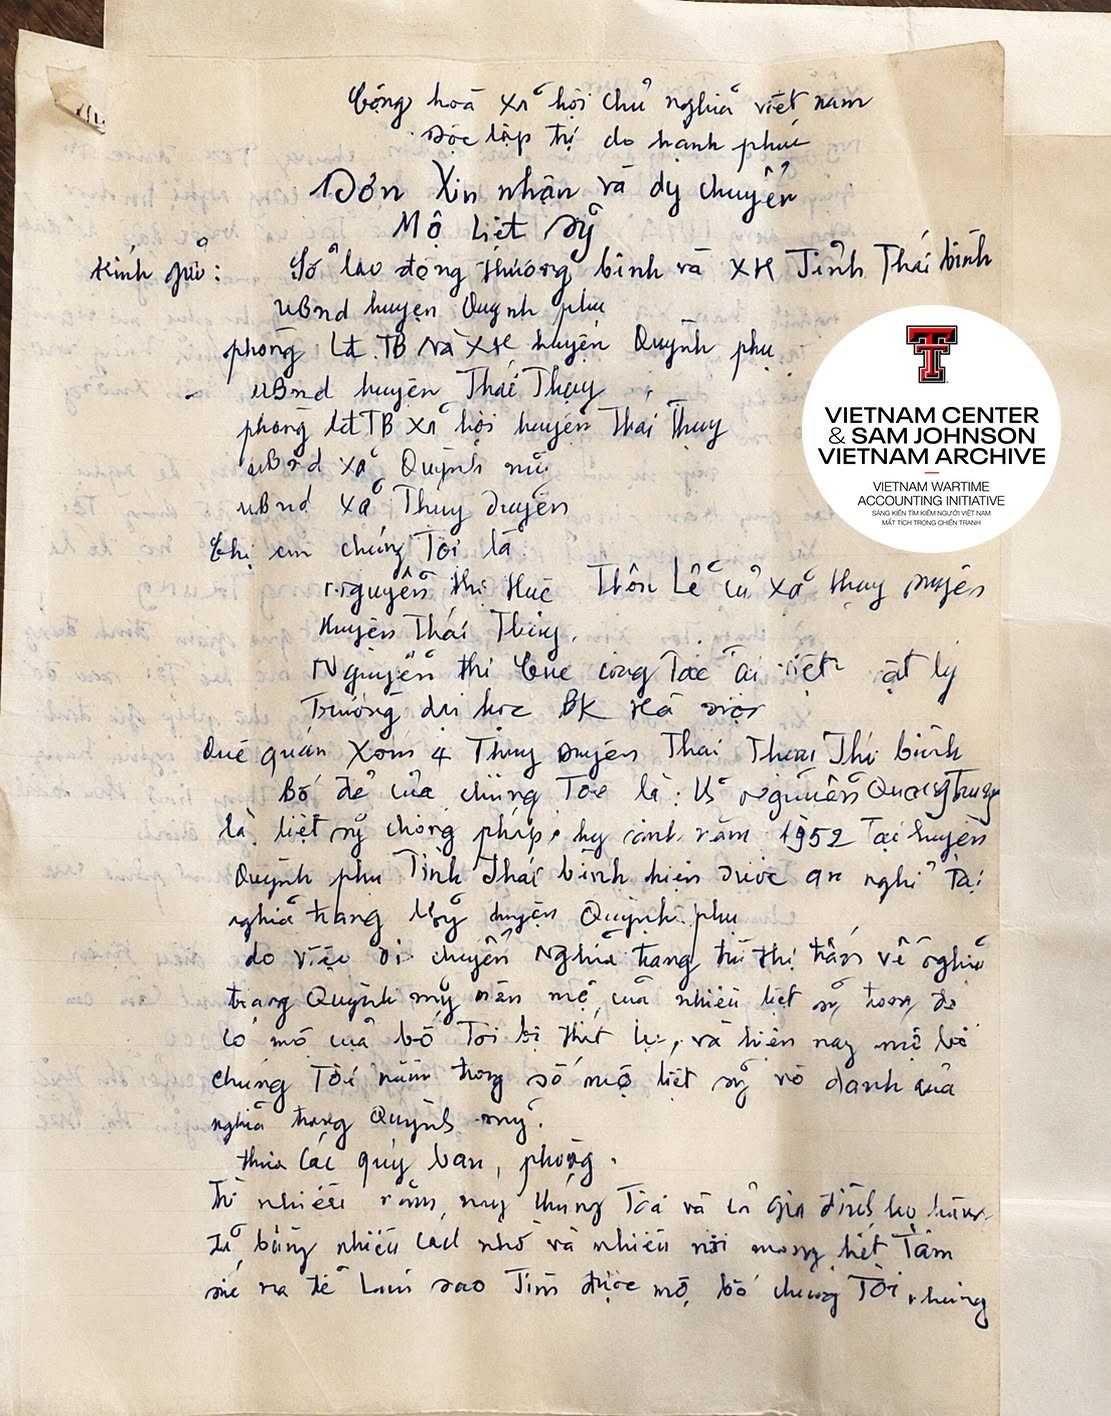 Cộng hoà xã hội chủ nghiã việt nam
Độc lập tự do hạnh phúc
Đơn Xin nhận và dy chuyển
Mộ liệt sỹ
Kính gửi: Sở lao động thương binh và XH Tỉnh Thái bình
UBnd huyện Quỳnh phụ
phòng LĐ TB và XH huyện Quỳnh phụ
UBnd huyện Thái Thụy
phòng LĐTB xã hội huyện Thái Thuỵ
UBnd xã Quỳnh mỹ
UBnd xã Thụy duyên
Chị em chúng Tôi là
Nguyễn thị Huê Thôn Lễ củ xã thụy duyên
Huyện Thái Thụy.
Nguyễn thị Cúc công Tác Tại viện vật lý
Trường đại học BK Hà Nội
Quê quán Xóm 4 Thụy Duyên Thái Thụy Thái bình
Bố đẻ của chúng Tôi là: LS Nguyễn Quang Trung
là liệt sỹ chống pháp, hy sinh năm 1952 Tại huyện
Quỳnh phụ Tỉnh Thái bình hiện được an nghỉ Tại
nghiã trang huyện Quỳnh phụ
do việc di chuyển Nghiã trang từ thị trấn về nghiã
trang Quỳnh mỹ nên mộ của nhiều liệt sỹ trong đó
có mộ của bố Tôi bị thất lạc, và hiện nay mộ bố
chúng Tôi nằm trong số mộ liệt sỹ vô danh của
nghiã trang Quỳnh mỹ.
thưa các quý ban, phòng.
Từ nhiều năm nay chúng Tôi và cả gia đình họ hàng
đã bằng nhiều cách nhờ và nhiều nơi mong hết Tâm
sức ra để Làm sao Tìm được mộ bố chúng Tôi nhưng
VIETNAM CENTER
& SAM JOHNSON
VIETNAM ARCHIVE
VIETNAM WARTIME
ACCOUNTING INITIATIVE
SÁNG KIẾN TÌM KIẾM NGƯỜI VIỆT NAM
MẤT TÍCH TRONG CHIẾN TRANH